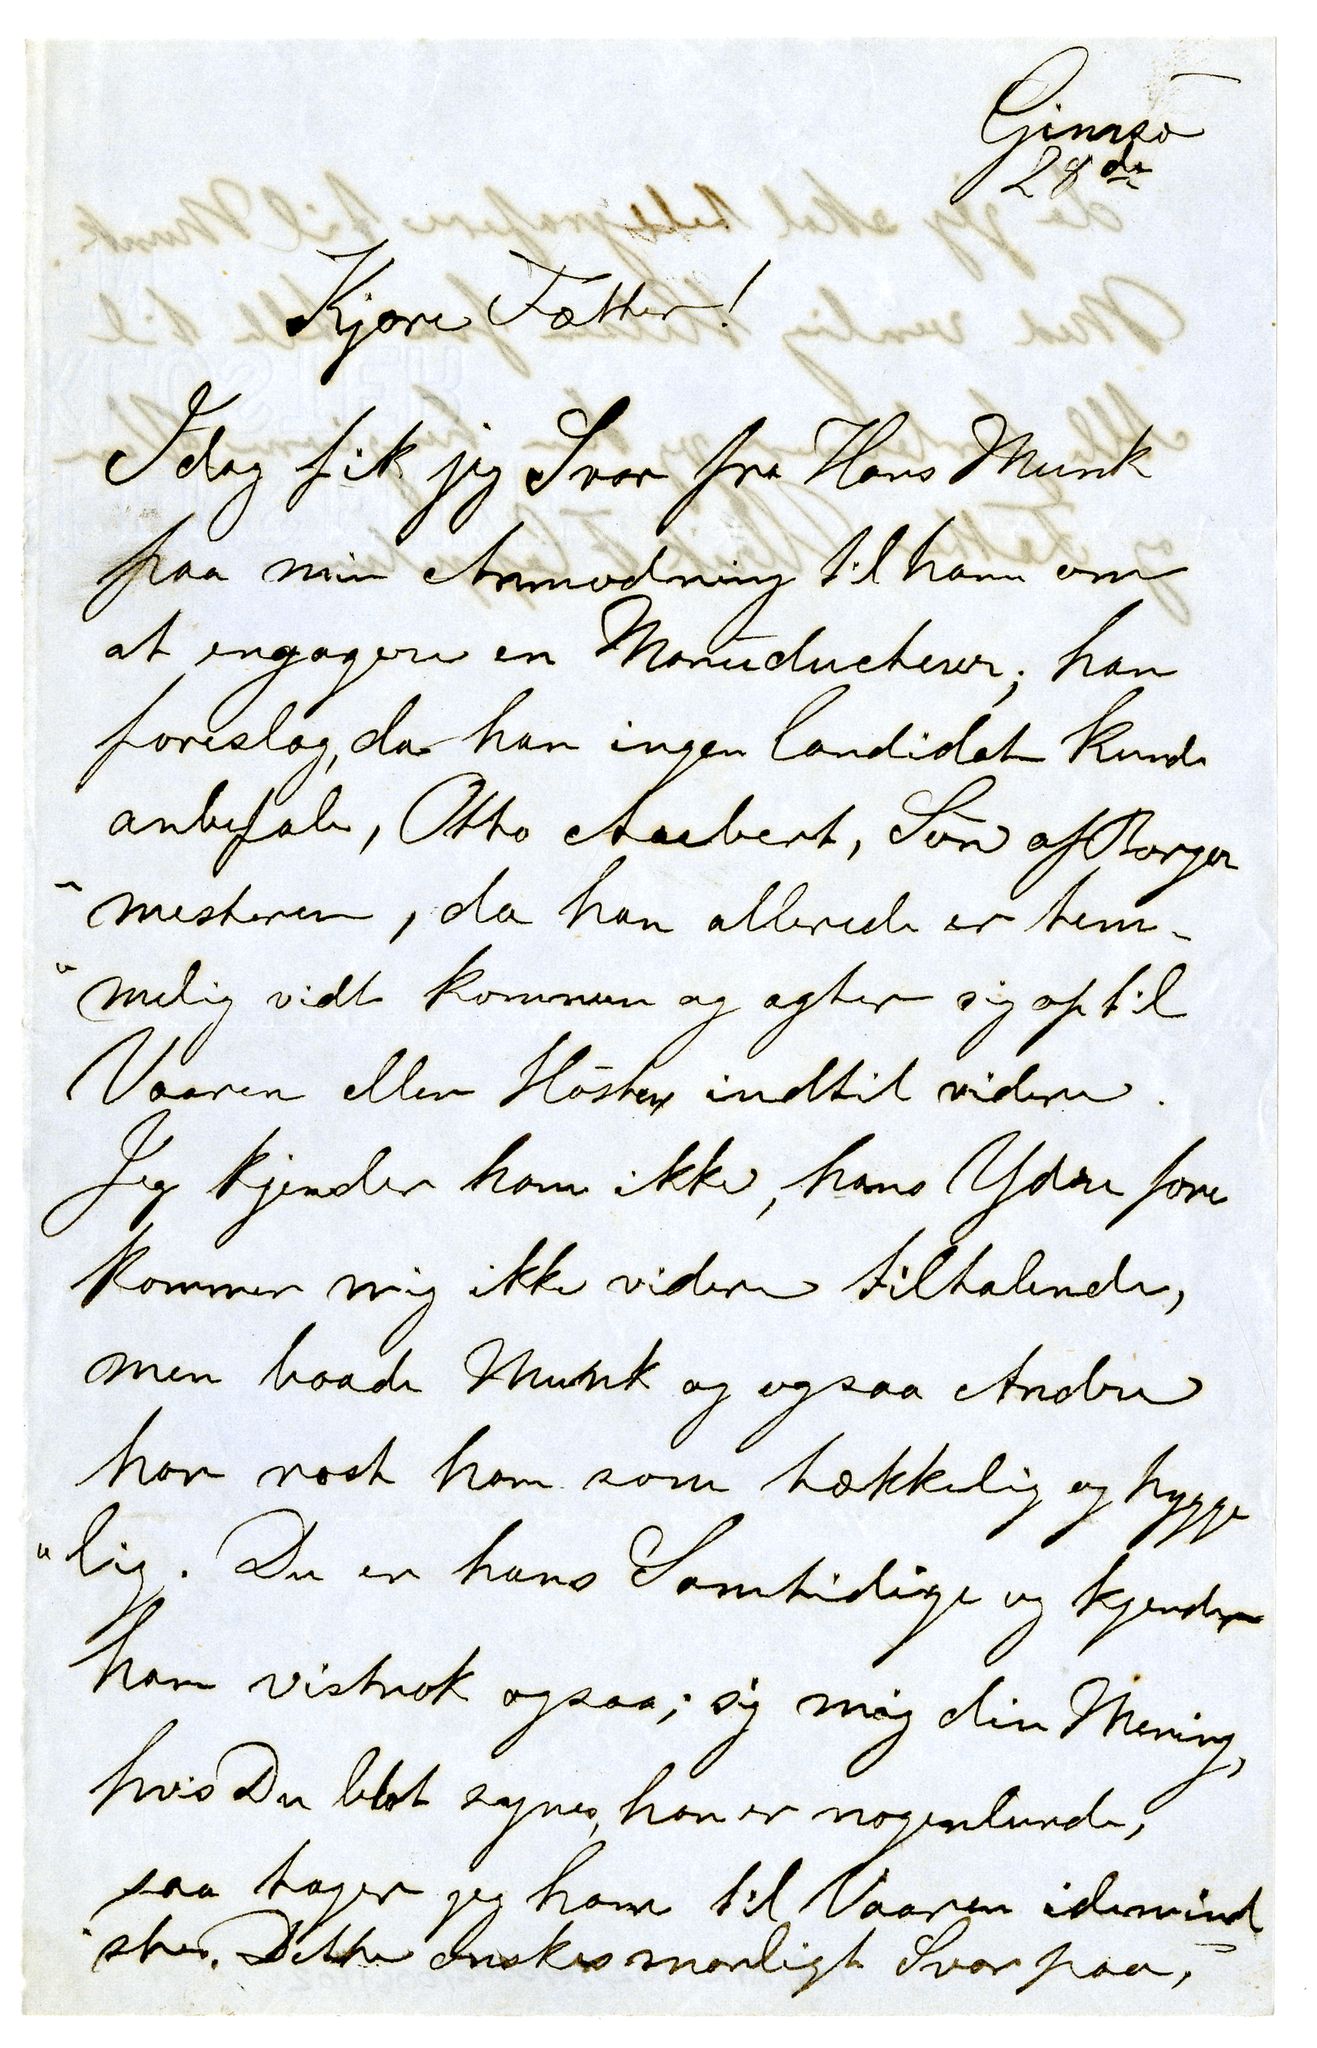 Gimsø
28de
Kjære Fætter!
Idag fik jeg Svar fra Hans Munk
paa min Anmodning til ham om
at engagere en Manuducteur; han
foreslog, da han ingen Candidat kunde
anbefale, Otto Aubert, Søn af Borger
"mesteren, da han allerede er tem-
"melig vidt kommen og agter sig op til
Vaaren eller Høsten indtil videre.
Jeg kjender ham ikke, hans Ydre fore
kommer mig ikke videre tiltalende,
men baade Munk og ogsaa Andre
har rost ham som tækkelig og hygge
"lig. Du er hans Samtidige og kjender
ham vistnok ogsaa; sig mig din Mening,
hvis Du blot synes, han er nogenlunde,
saa tager jeg ham til Vaaren idemind
"ste. Dette ønskes snarligt Svar paa,